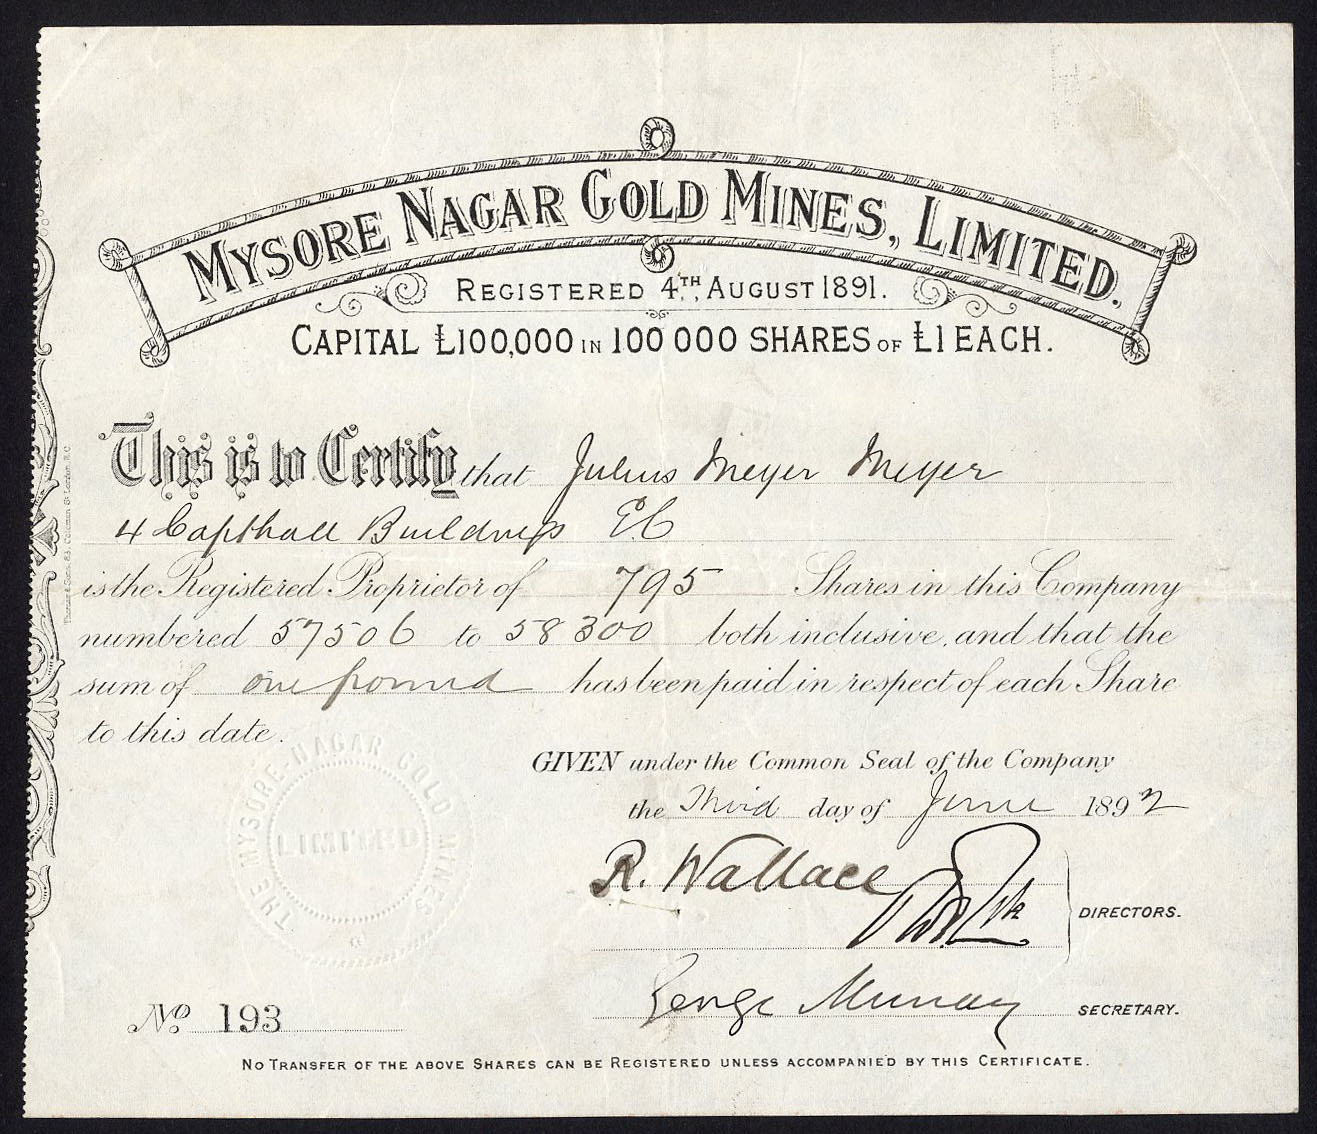 MYSORE NAGAR GOLD MINES, LIMITED.
REGISTERED 4TH, AUGUST 1891.
CAPITAL £100,000 IN 100 000 SHARES OF £1 EACH.
This is to Certify that Julius Meyer Meyer
4 Copthall Buildings E.C
is the Registered Proprietor of 795 Shares in this Company
numbered 57506 to 58300 both inclusive, and that the
sum of one pound has been paid in respect of each Share
to this date.
GIVEN under the Common Seal of the Company
the Third day of June 1892
R. Wallace
DIRECTORS.
George Murray SECRETARY.
THE MYSORE-NAGAR GOLD MINES
LIMITED
No 193
NO TRANSFER OF THE ABOVE SHARES CAN BE REGISTERED UNLESS ACCOMPANIED BY THIS CERTIFICATE.